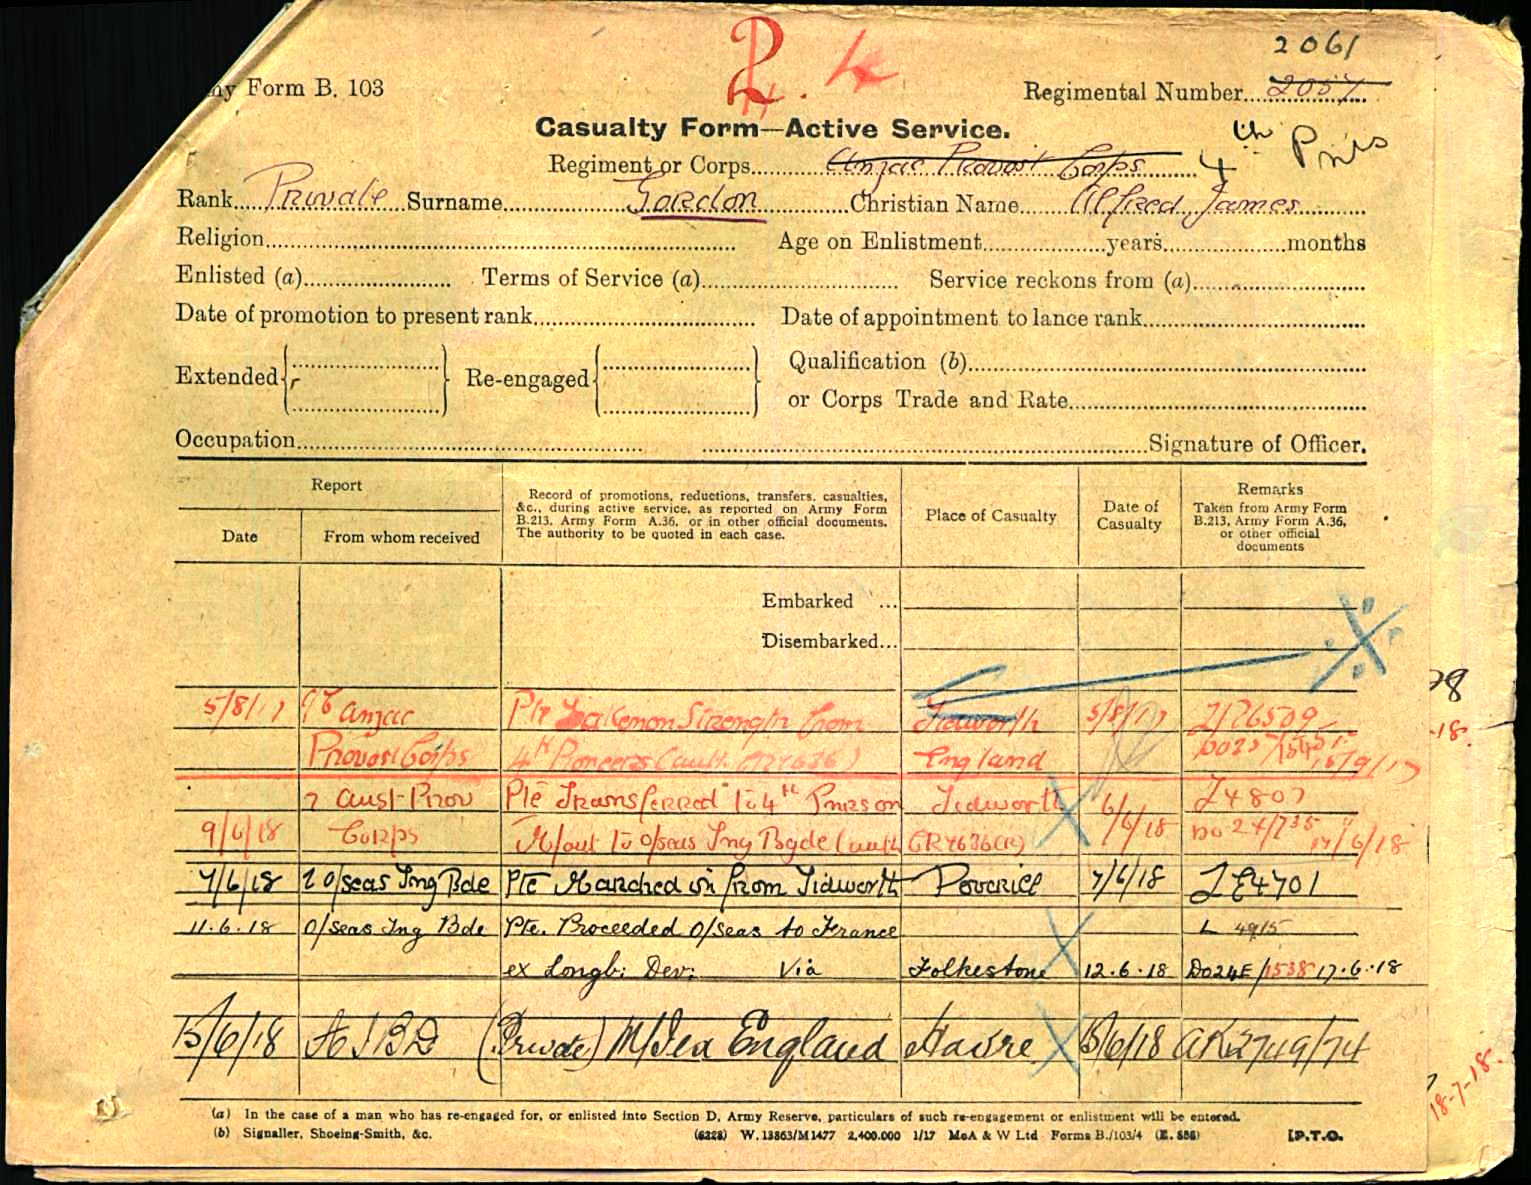 2 . 4
2061
my Form B. 103
Regimental Number 2057
Casualty Form—Active Service.
Regiment or Corps Anzac Provost Corps 4th Pnrs
Rank Private Surname Gordon Christian Name Alfred James
Religion Age on Enlistment years months
Enlisted (a) Terms of Service (a) Service reckons from (a)
Date of promotion to present rank Date of appointment to lance rank
Extended Re-engaged Qualification (b)
or Corps Trade and Rate
Occupation Signature of Officer.
Report
Date From whom received
Record of promotions, reductions, transfers, casualties, &c., during active service, as reported on Army Form B.213, Army Form A.36, or in other official documents. The authority to be quoted in each case.
Place of Casualty
Date of Casualty
Remarks Taken from Army Form B.213, Army Form A.36, or other official documents
Embarked ...
Disembarked...
5/8/17 Anzac Pte Taken on Strength from Tidworth 5/8/17
Provost Corps 4th Pioneers England
Aust Prov Pte Transferred to 4th Pnrs on Tidworth 6/6/18
9/6/18 Corps M/out to o/seas Tng Bgde (auth
7/6/18 O/seas Tng Bde Pte Marched in from Tidworth Deverill 7/6/18
11.6.18 O/seas Tng Bde Pte. Proceeded O/Seas to France L 4915
ex Longb: Dev: Via Folkestone 12.6.18 DO24E/1538 17.6.18
15/6/18 A I B D (Private) M/In ex England Havre 15/6/18 AK2749/74
18-7-18.
(a) In the case of a man who has re-engaged for, or enlisted into Section D, Army Reserve, particulars of such re-engagement or enlistment will be entered.
(b) Signaller, Shoeing-Smith, &c. (6228) W. 13863/M1477 2,400,000 1/17 McA & W Ltd Forms B./103/4 (E. 886) [P.T.O.